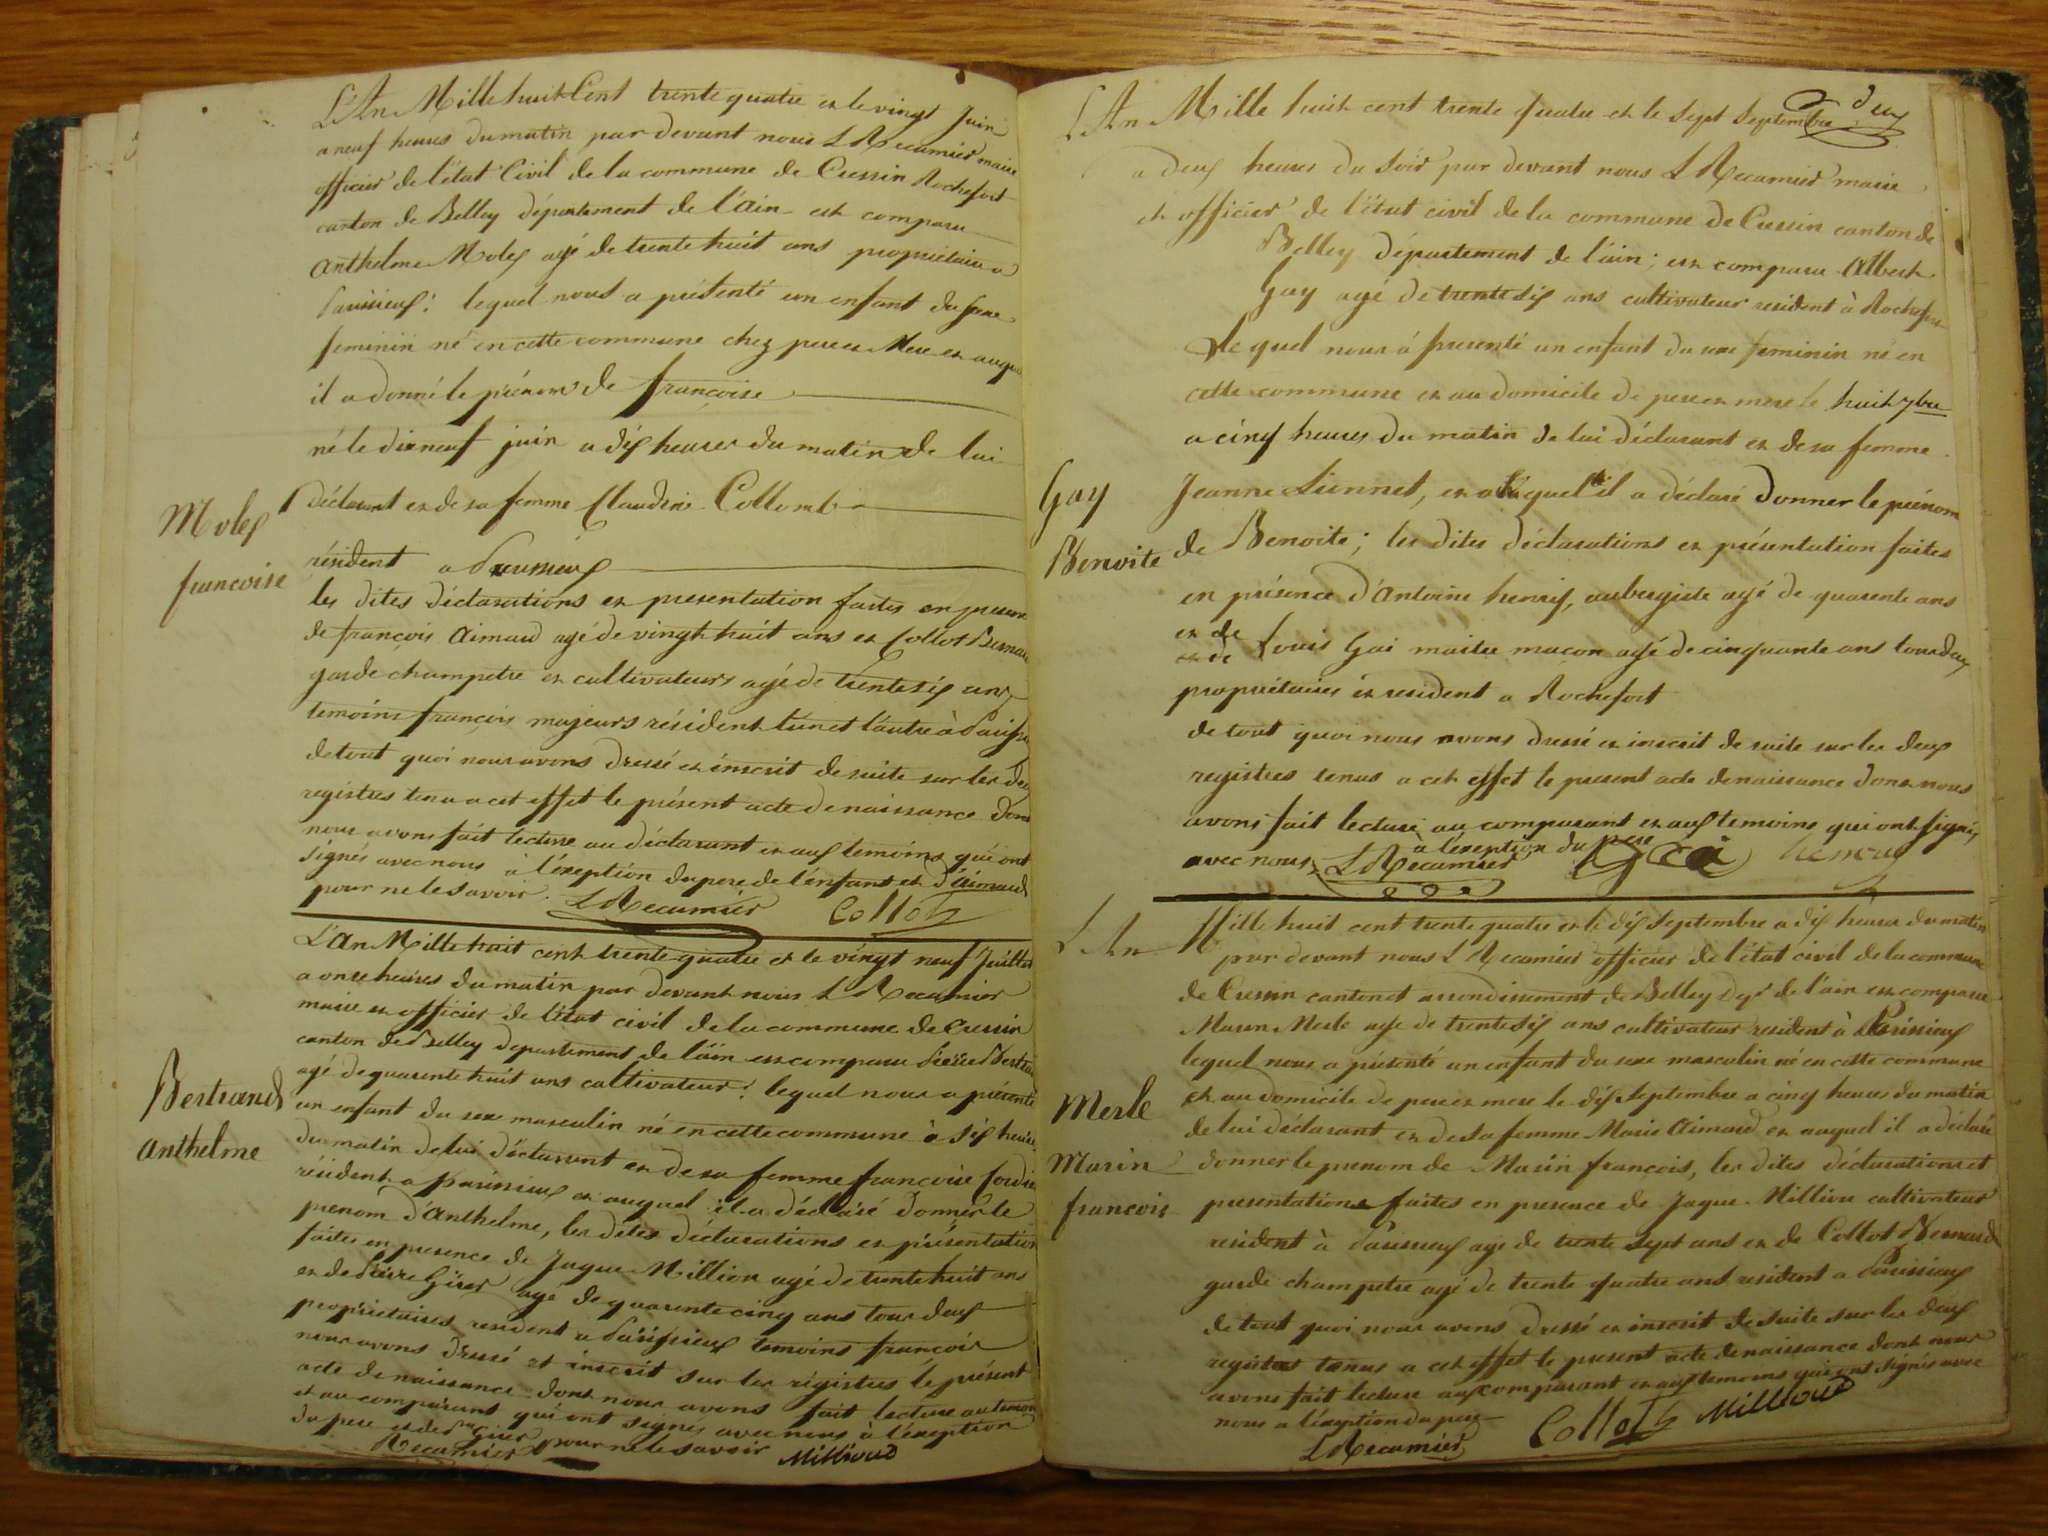 L'An Mille huit Cent trente quatre et le vingt Juin
a neuf heures du matin par devant nous L Recamier maire
officier de l'état Civil de la commune de Cressin Rochefort
canton de Belley département de l'Ain est comparu
Anthelme Molex agé de trente huit ans propriétaire a
lequel nous a présenté un enfant du sexe
feminin né en cette commune chez pere et Mere et auquel
il a donné le prénom de francoise
né le dix neuf juin a dix heures du matin de lui
déclarant et de sa femme Claudine Collomb
Molex
résident a
francoise
les dites déclarations et presentation faites en presence
de françois Aimard agé de vingt huit ans et Collot Bernard
garde champetre et cultivateurs agé de trente six ans
temoins françois majeurs résident l'un et l'autre à
de tout quoi nous avons dressé et inscrit de suite sur les deux
registres tenu a cet effet le présent acte de naissance dont
nous avons fait lecture au déclarant et aux temoins qui ont
signés avec nous à l'éxeption du pere de l'enfant et d'Aimard
pour ne le savoir. L Recamier Collot
L'An Mille huit cent trente quatre et le vingt neuf Juillet
a onze heures du matin par devant nous L Recamier
maire et officier de l'état civil de la commune de Cressin
canton de Belley departement de l'ain est comparu Pierre Bertrand
agé de quarente huit ans cultivateur; lequel nous a présenté
Bertrand
un enfant du sexe masculin né en cette commune à six heures
Anthelme
du matin de lui déclarant et de sa femme francoise
résident a parissieux et auquel il a déclaré donner le
prenom d'Anthelme, les dites déclarations et présentation
faites en presence de Jaque Million agé de trente huit ans
et de Pierre agé de quarente cinq ans tous deux
proprietaires resident a Parissieux temoins françois
nous avons dressé et inscrit sur les régistres le présent
acte de naissance dont nous avons fait lecture au temoins
et au comparant qui ont signés avec nous à l'éxeption
du pere et de pour ne le savoir
Recamier Millioud
deux
L'An Mille huit cent trente quatre et le sept Septembre
a deux heures du soir par devant nous L Recamier maire
et officier de l'état civil de la commune de Cressin canton de
Belley département de l'ain; est comparu Albert
Gay agé de trente six ans cultivateur resident à Rochefort
Le quel nous à presenté un enfant du sexe feminin né en
cette commune et au domicile de pere et mere le huit 7bre
a cinq heures du matin de lui déclarant et de sa femme
Gay
Jeanne et a laquel il a déclaré donner le prénom
Benoite
de Benoite; les dites déclarations et présentation faites
en présence d'Antoine henry, aubergiste agé de quarente ans
et de
et de Louis Gai maitre maçon agé de cinquante ans tous deux
propriétaires et resident a Rochefort
de tout quoi nous avons dressé et inscrit de suite sur les deux
registres tenus a cet effet le present acte de naissance dont nous
avons fait lecture au comparant et aux temoins qui ont signés
avec nous, a l'éxeption du pere
L Recamier Gai henry
L'An Mille huit cent trente quatre et le dix septembre a dix heures du matin
par devant nous L Recamier officier de l'état civil de la commune
de Cressin canton et arrondissement de Belley dpt de l'ain est comparu
Marin Merle age de trente six ans cultivateur resident à Parissieux
lequel nous a présenté un enfant du sexe masculin né en cette commune
Merle
et au domicile de pere et mere le dix septembre a cinq heures du matin
de lui déclarant et de sa femme Marie Aimard et auquel il a déclaré
Marin
donner le prenom de Marin françois, les dites déclarations et
francois
presentation faites en presence de Jaque Million cultivateur
resident à Parissieux agé de trente sept ans et de Collot Bernard
garde champetre agé de trente quatre ans resident a Parissieux
de tout quoi nous avons dressé et inscrit de suite sur les deux
registres tenus a cet effet le present acte de naissance dont nous
avons fait lecture aux comparant et aux temoins qui ont signés avec
nous a l'éxeption du pere
L Recamier Collot Millioud